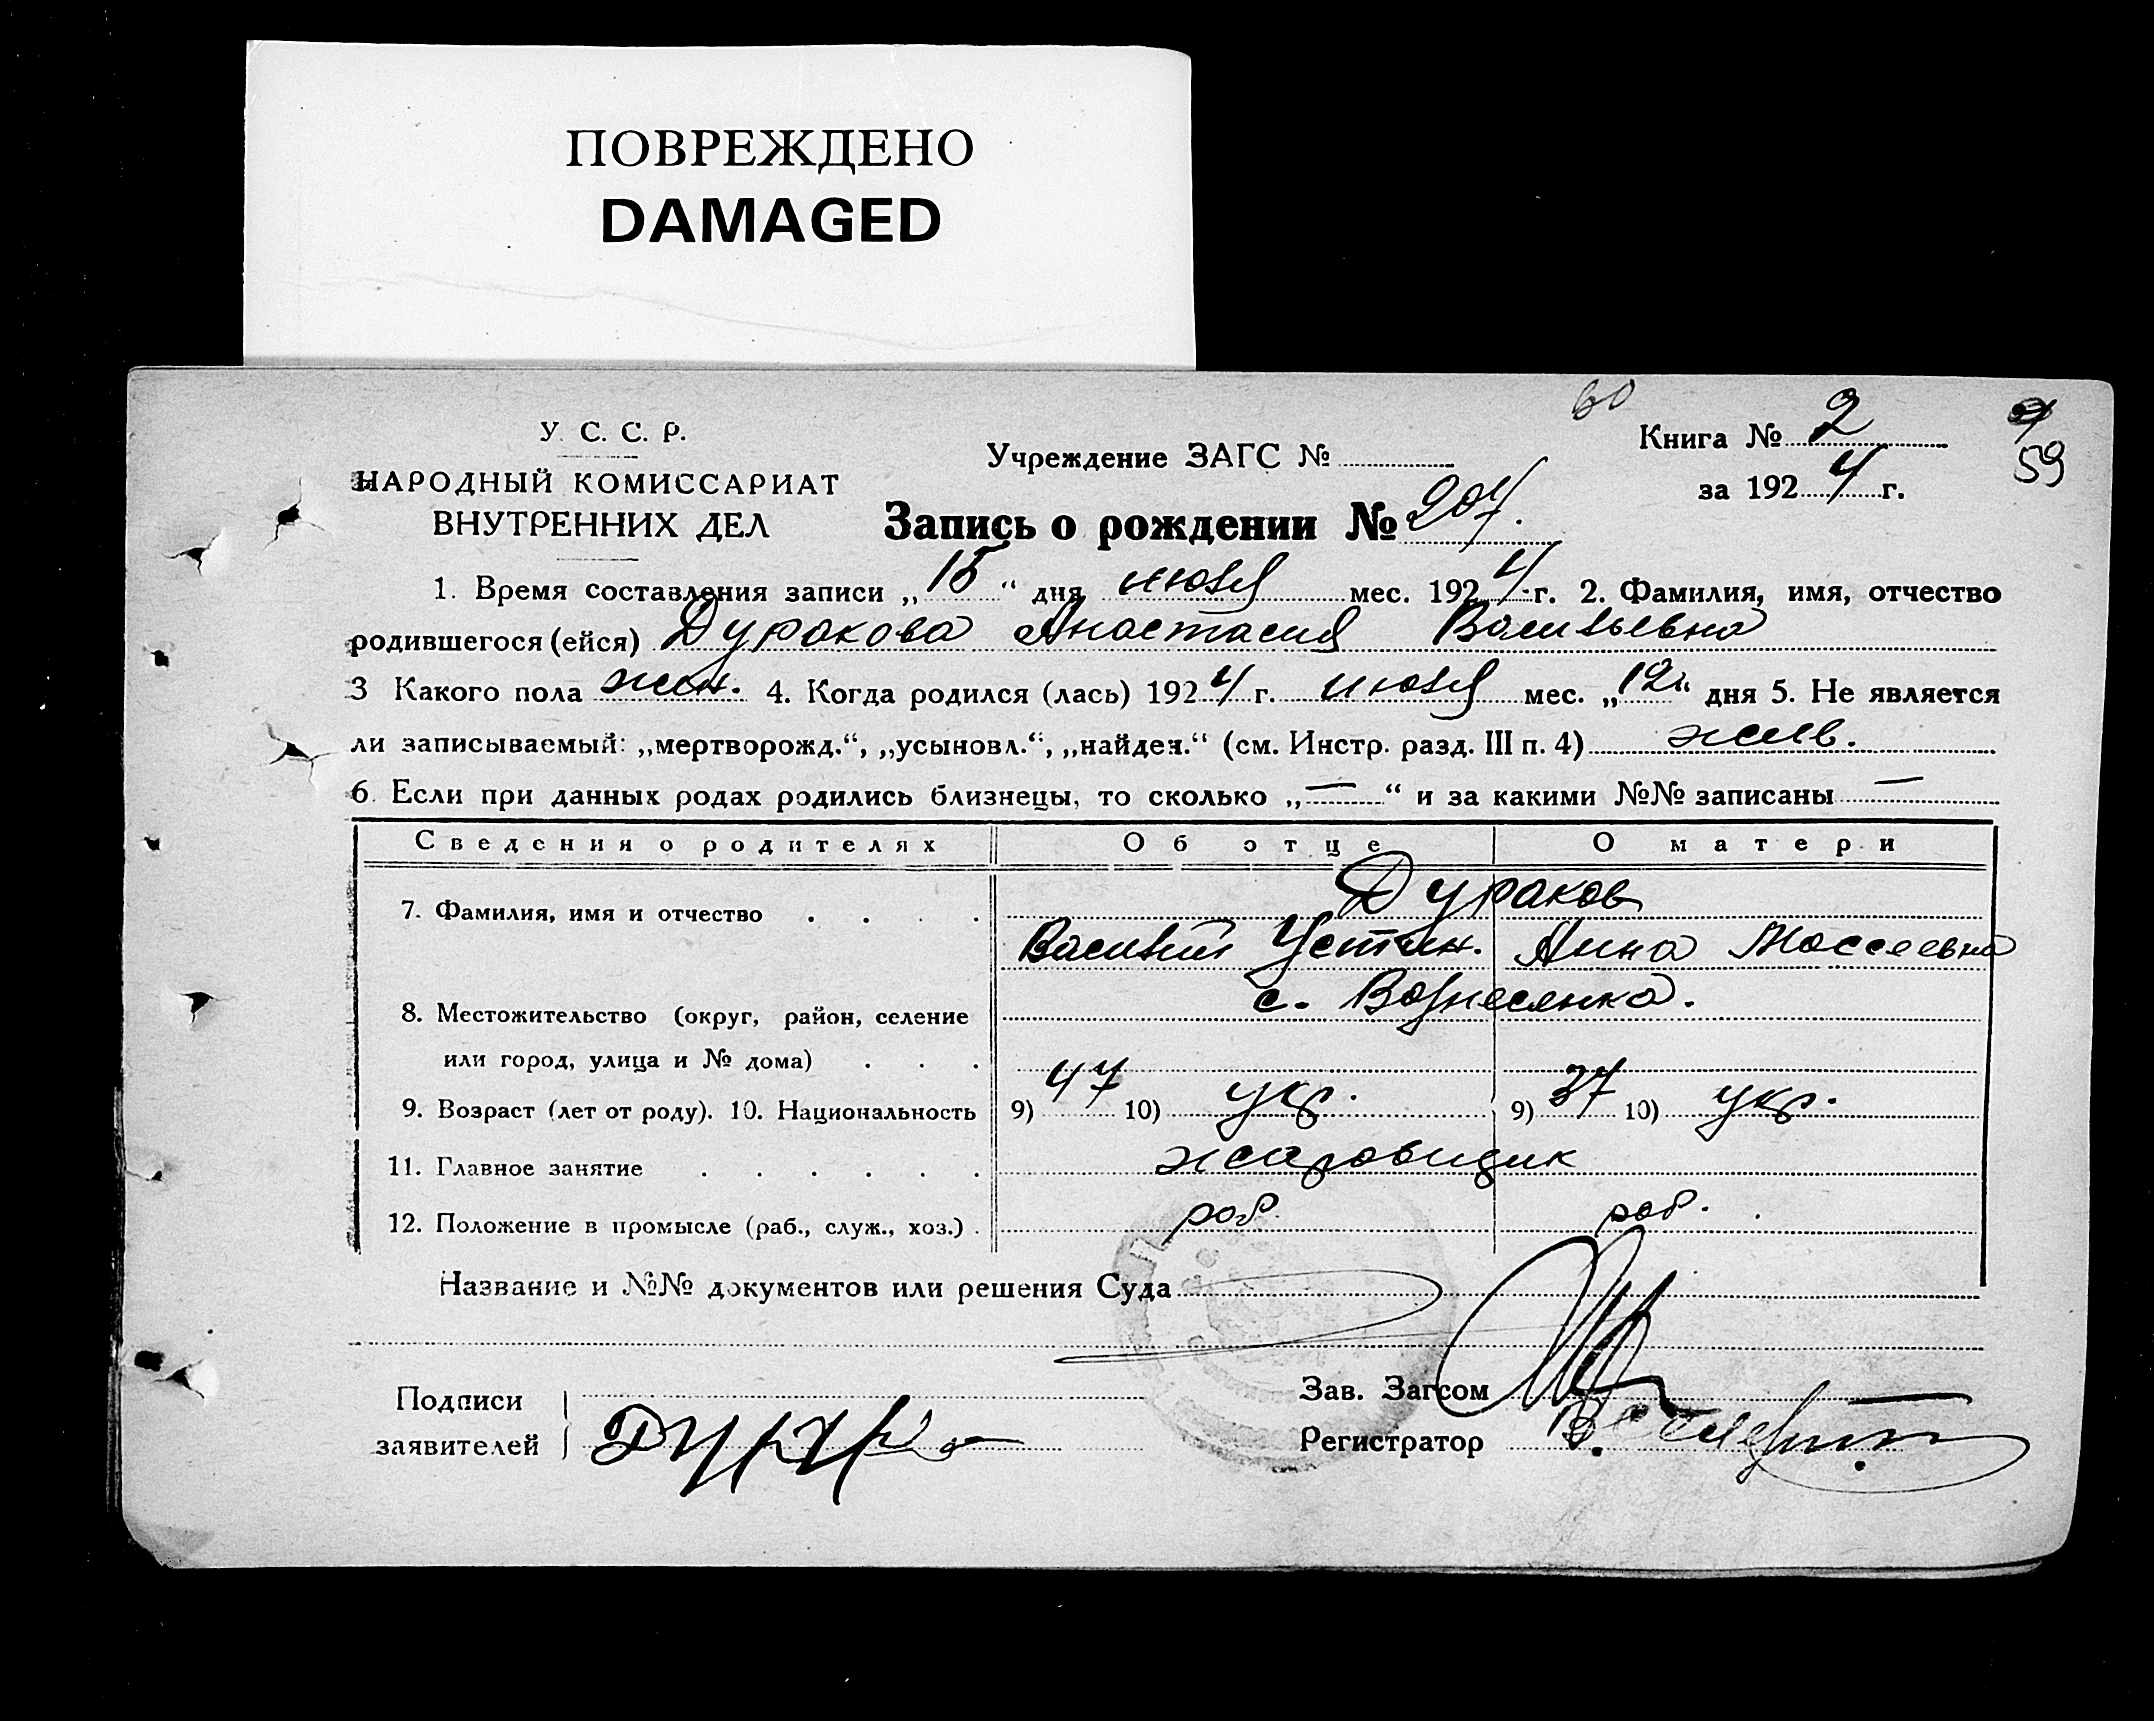 ПОВРЕЖДЕНО
DAMAGED
60
У. С. С. Р.
НАРОДНЫЙ КОМИССАРИАТ
ВНУТРЕННИХ ДЕЛ
Учреждение ЗАГС №
Книга № 2
за 1924 г.
59
Запись о рождении № 204.
1. Время составления записи „15“ дня июля мес. 1924 г. 2. Фамилия, имя, отчество
родившегося (ейся) Дуракова Анастасия Васильевна
3 Какого пола жен. 4. Когда родился (лась) 1924 г. июля мес. „12“ дня 5. Не является
ли записываемый: „мертворожд.“, „усыновл.“, „найден.“ (см. Инстр. разд. III п. 4) жив.
6. Если при данных родах родились близнецы, то сколько „—“ и за какими №№ записаны —
Сведения о родителях Об отце О матери
7. Фамилия, имя и отчество . . . . Дураков
Василий Устин. Анна Моссеевна
8. Местожительство (округ, район, селение с. Вознесенка.
или город, улица и № дома) . . .
9. Возраст (лет от роду). 10. Национальность 9) 47 10) укр. 9) 37 10) укр.
11. Главное занятие . . . . . . жаровщик
12. Положение в промысле (раб., служ., хоз.) . раб. раб.
Название и №№ документов или решения Суда
Подписи
заявителей
Зав. Загсом
Регистратор